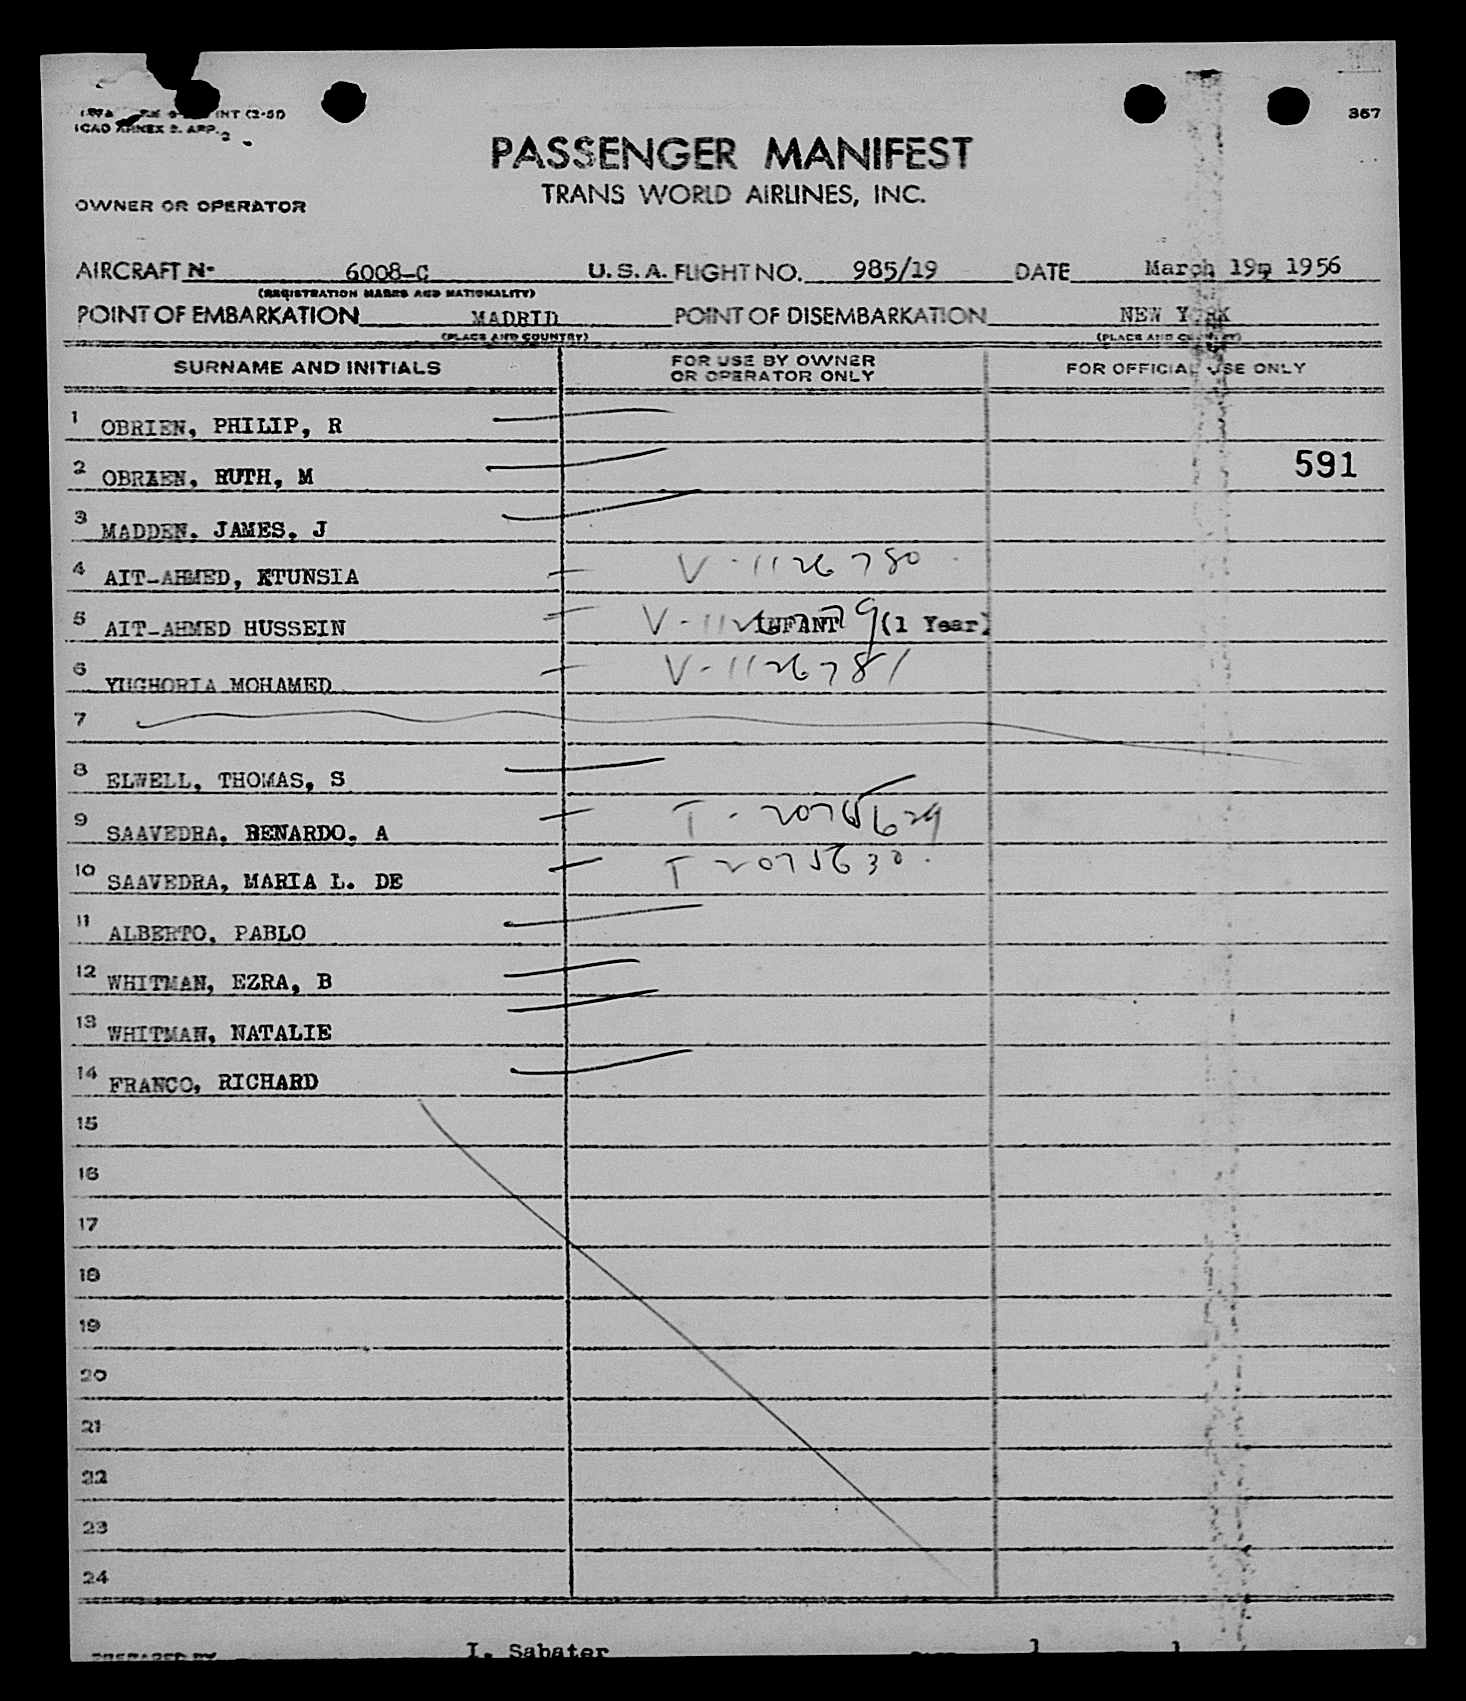 INT (2-51)
ICAO ANNEX 2. APP. 2
357
PASSENGER MANIFEST
TRANS WORLD AIRLINES, INC.
OWNER OR OPERATOR
AIRCRAFT No 6008-C U.S.A. FLIGHT NO. 985/19 DATE March 19, 1956
(REGISTRATION MARKS AND NATIONALITY)
POINT OF EMBARKATION MADRID POINT OF DISEMBARKATION NEW YORK
(PLACE AND COUNTRY) (PLACE AND COUNTRY)
SURNAME AND INITIALS FOR USE BY OWNER OR OPERATOR ONLY FOR OFFICIAL USE ONLY
1 OBRIEN, PHILIP, R
2 OBRIEN, RUTH, M 591
3 MADDEN, JAMES, J
4 AIT-AHMED, KTUNSIA V-1126780
5 AIT-AHMED HUSSEIN V-1126779 INFANT (1 Year)
6 YUGHORTA MOHAMED V-1126781
7
8 ELWELL, THOMAS, S
9 SAAVEDRA, BENARDO, A T-2075629
10 SAAVEDRA, MARIA L. DE T 2075630
11 ALBERTO, PABLO
12 WHITMAN, EZRA, B
13 WHITMAN, NATALIE
14 FRANCO, RICHARD
15
16
17
18
19
20
21
22
23
24
PREPARED BY I. Sabater 1 1